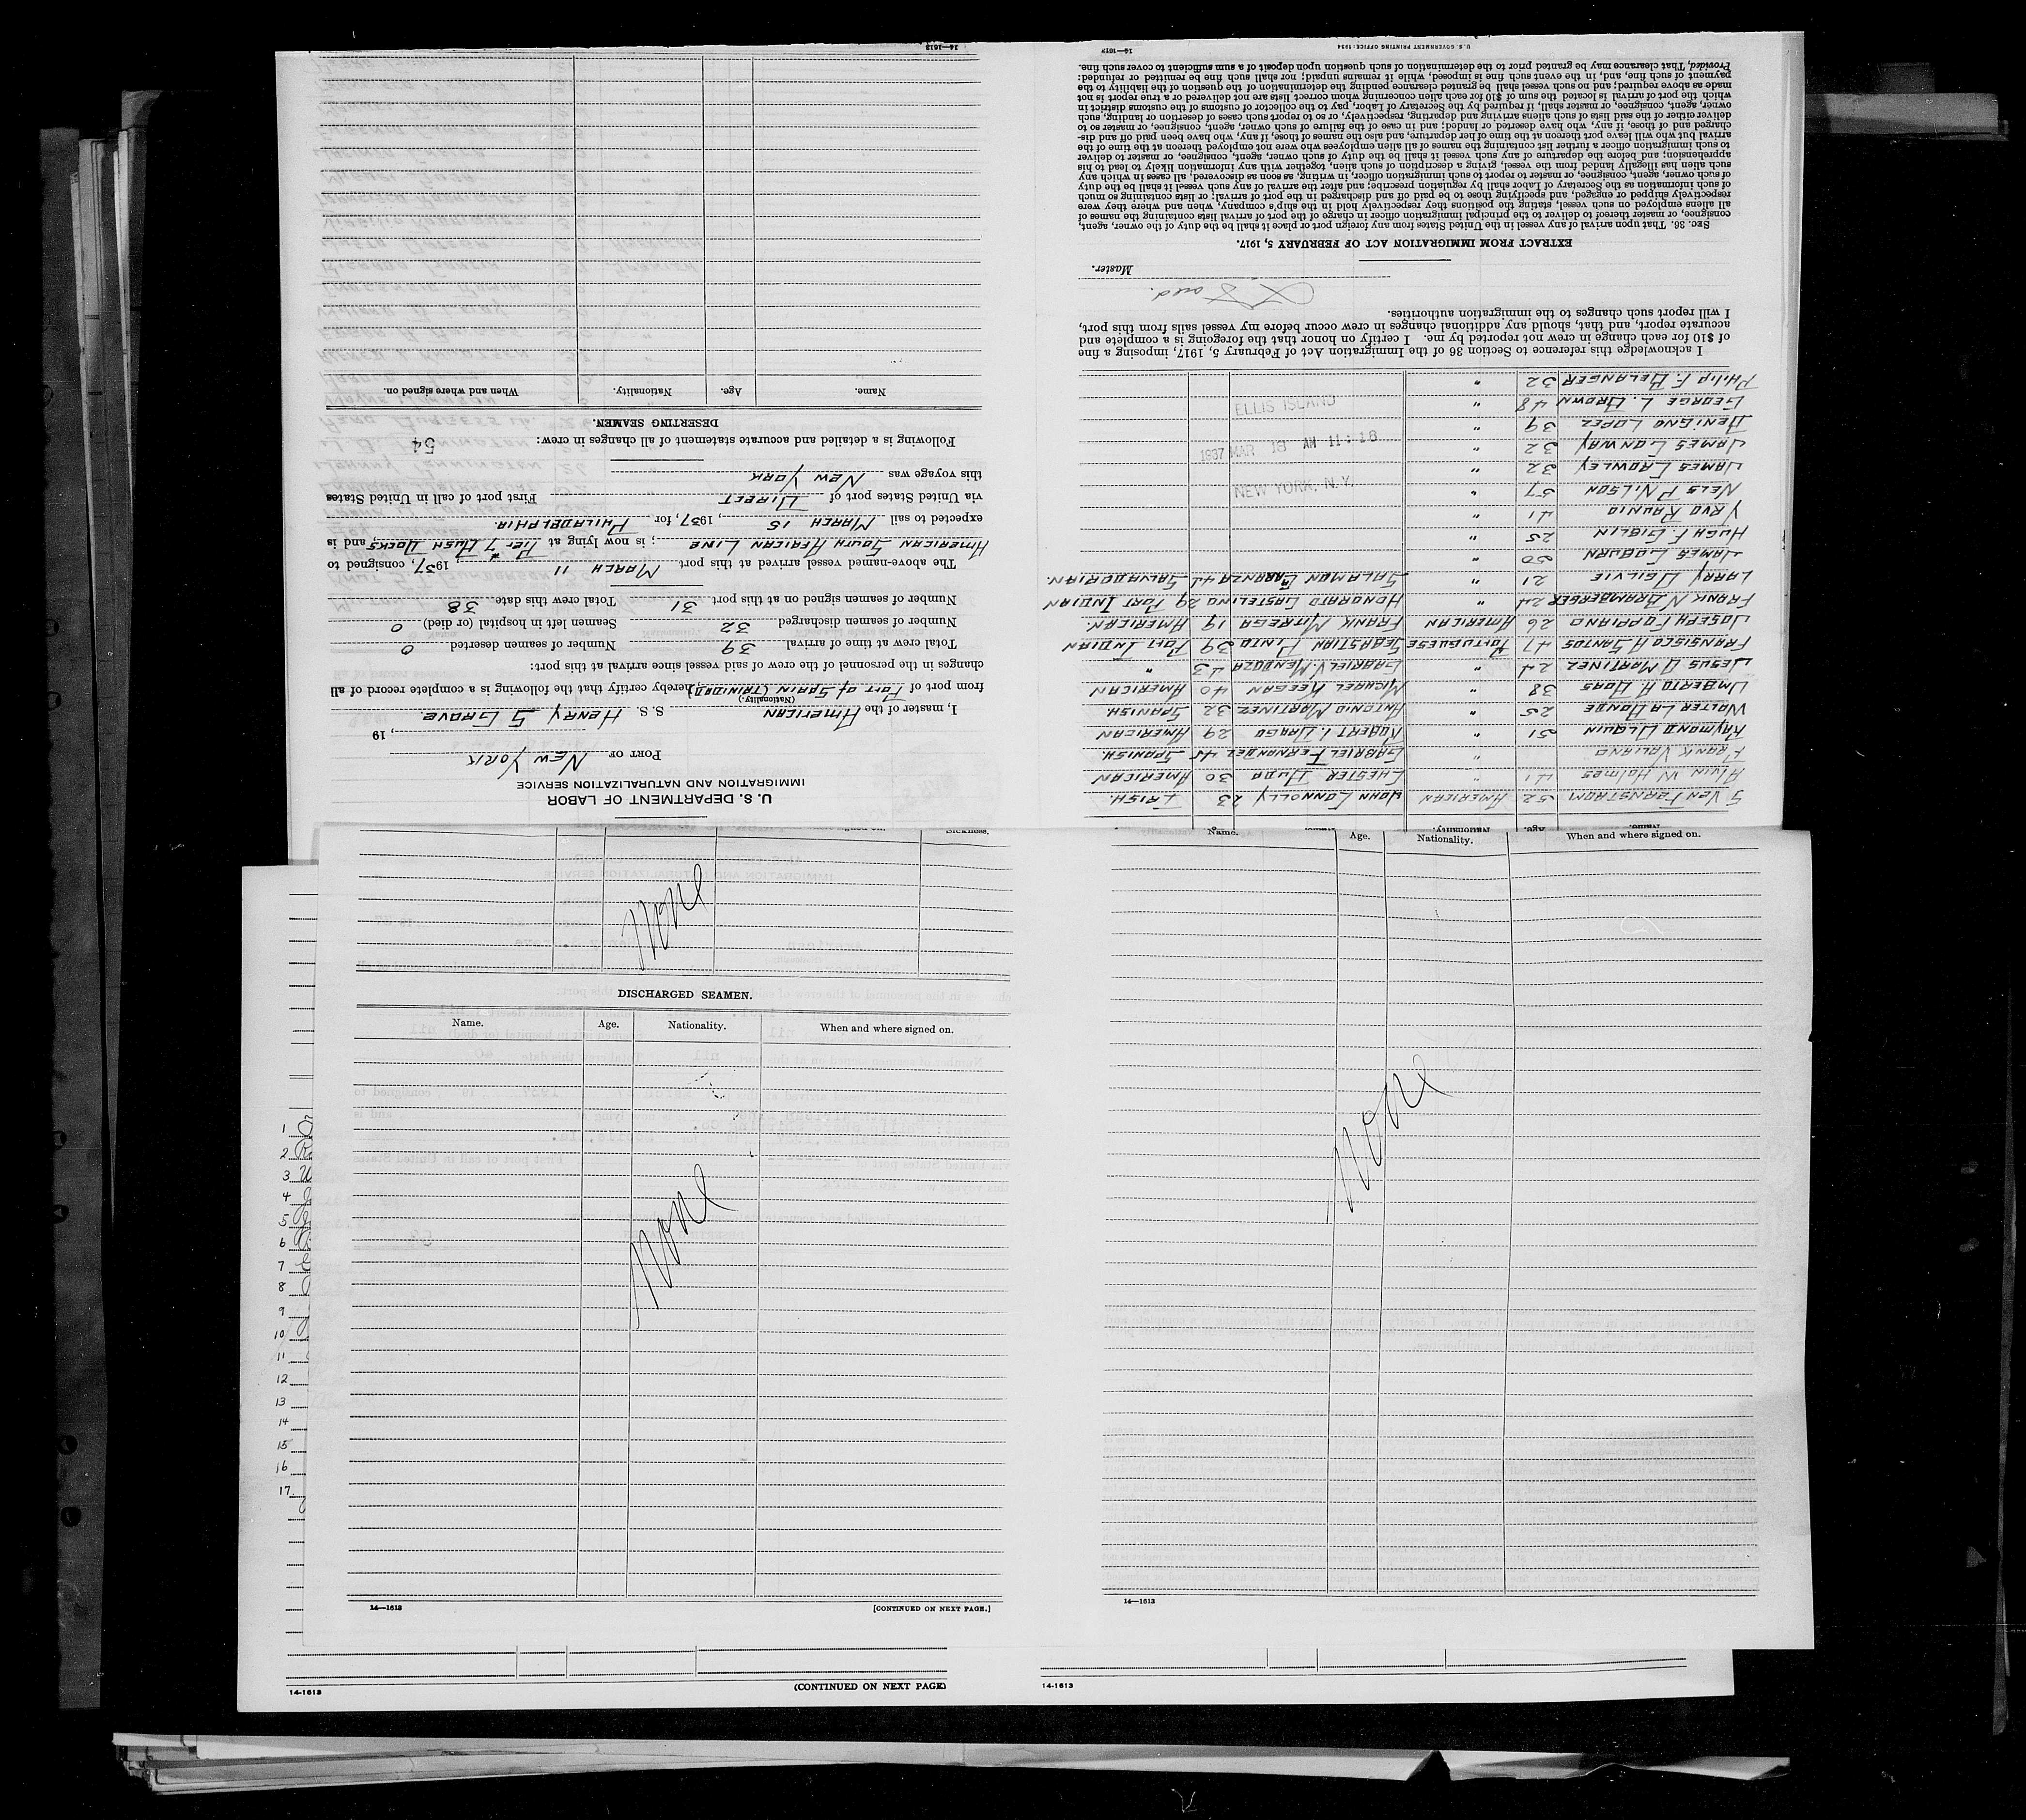 U. S. DEPARTMENT OF LABOR
IMMIGRATION AND NATURALIZATION SERVICE
PORT OF NEW YORK
, 19
I, master of the AMERICAN S. S. HENRY S GROVE
(Nationality)
from port of PORT OF SPAIN (TRINIDAD), hereby certify that the following is a complete record of all
changes in the personnel of the crew of said vessel since arrival at this port:
Total crew at time of arrival 39 Number of seamen deserted 0
Number of seamen discharged 32 Seamen left in hospital (or died) 0
Number of seamen signed on at this port 31 Total crew this date 38
The above-named vessel arrived at this port MARCH 11, 1937, consigned to
AMERICAN SOUTH AFRICAN LINE; is now lying at PIER #7 BUSH DOCKS, and is
expected to sail MARCH 15, 1937, for PHILADELPHIA
via United States port of DIRECT First port of call in United States
this voyage was NEW YORK
Following is a detailed and accurate statement of all changes in crew: 54
DESERTING SEAMEN.
Name. Age. Nationality. When and where signed on.
14—1613
Name. Age. Nationality. Name. Age.
SVEN FERNSTROM 52 AMERICAN JOHN CONNOLLY 23 IRISH
ALVIN W HOLMES 41 " CHESTER DUDA 30 AMERICAN
FRANK VALIANO " GABRIEL FERNANDEZ 44 SPANISH
RAYMOND OLQUIN 51 " ROBERT I. DRAGO 29 AMERICAN
WALTER LABONDE 25 " ANTONIO MARTINEZ 32 SPANISH
UMBERTO A DOAS 38 " MICHAEL KEEGAN 40 AMERICAN
JESUS D MARTINEZ 24 " GABRIEL V MENDOZA 43 "
FRANSISCO A SANTOS 47 PORTUGUESE SEBASTIAN PINTO 39 PORT INDIAN
JOSEPH FOPPIANO 26 AMERICAN FRANK MATREGA 19 AMERICAN.
FRANK N BRAMBERGER 24 " HONORATO CASTELINO 29 PORT INDIAN
LARRY OGILVIE 21 " SALAMON CABANZA 44 SALVADORIAN.
JAMES COBURN 50 "
HUGH F. GIBLIN 25 "
YRVO RAUNIO 41 "
NELS P NILSON 57 "
JAMES CROWLEY 32 "
JAMES CONWAY 32 "
BENIGNO LOPEZ 39 "
GEORGE L. BROWN 48 "
PHILIP F. BELANGER 32 "
NEW YORK, N.Y.
1937 MAR 18 AM 11:18
ELLIS ISLAND
I acknowledge this reference to Section 36 of the Immigration Act of February 5, 1917, imposing a fine
of $10 for each change in crew not reported by me. I certify on honor that the foregoing is a complete and
accurate report, and that, should any additional changes in crew occur before my vessel sails from this port,
I will report such changes to the immigration authorities.
Master.
EXTRACT FROM IMMIGRATION ACT OF FEBRUARY 5, 1917.
SEC. 36. That upon arrival of any vessel in the United States from any foreign port or place it shall be the duty of the owner, agent,
consignee, or master thereof to deliver to the principal immigration officer in charge of the port of arrival lists containing the names of
all aliens employed on such vessel, stating the positions they respectively hold in the ship's company, when and where they were
respectively shipped or engaged, and specifying those to be paid off and discharged in the port of arrival; or lists containing so much
of such information as the Secretary of Labor shall by regulation prescribe; and after the arrival of any such vessel it shall be the duty
of such owner, agent, consignee, or master to report to such immigration officer, in writing, as soon as discovered, all cases in which any
such alien has illegally landed from the vessel, giving a description of such alien, together with any information likely to lead to his
apprehension; and before the departure of any such vessel it shall be the duty of such owner, agent, consignee, or master to deliver
to such immigration officer a further list containing the names of all alien employees who were not employed thereon at the time of the
arrival but who will leave port thereon at the time of her departure, and also the names of those, if any, who have been paid off and dis-
charged and of those, if any, who have deserted or landed; and in case of the failure of such owner, agent, consignee, or master so to
deliver either of the said lists of such aliens arriving and departing, respectively, or so to report such cases of desertion or landing, such
owner, agent, consignee, or master shall, if required by the Secretary of Labor, pay to the collector of customs of the customs district in
which the port of arrival is located the sum of $10 for each alien concerning whom correct lists are not delivered or a true report is not
made as above required; and no such vessel shall be granted clearance pending the determination of the question of the liability to the
payment of such fine, and, in the event such fine is imposed, while it remains unpaid; nor shall such fine be remitted or refunded:
Provided, That clearance may be granted prior to the determination of such question upon deposit of a sum sufficient to cover such fine.
14—1613 U. S. GOVERNMENT PRINTING OFFICE: 1934
sickness.
None
DISCHARGED SEAMEN.
Name. Age. Nationality. When and where signed on.
None
14—1613 [CONTINUED ON NEXT PAGE.]
Age. Nationality. When and where signed on.
None
14—1613
1
2
3
4
5
6
7
8
9
10
11
12
13
14
15
16
17
14-1613 (CONTINUED ON NEXT PAGE)
14-1613